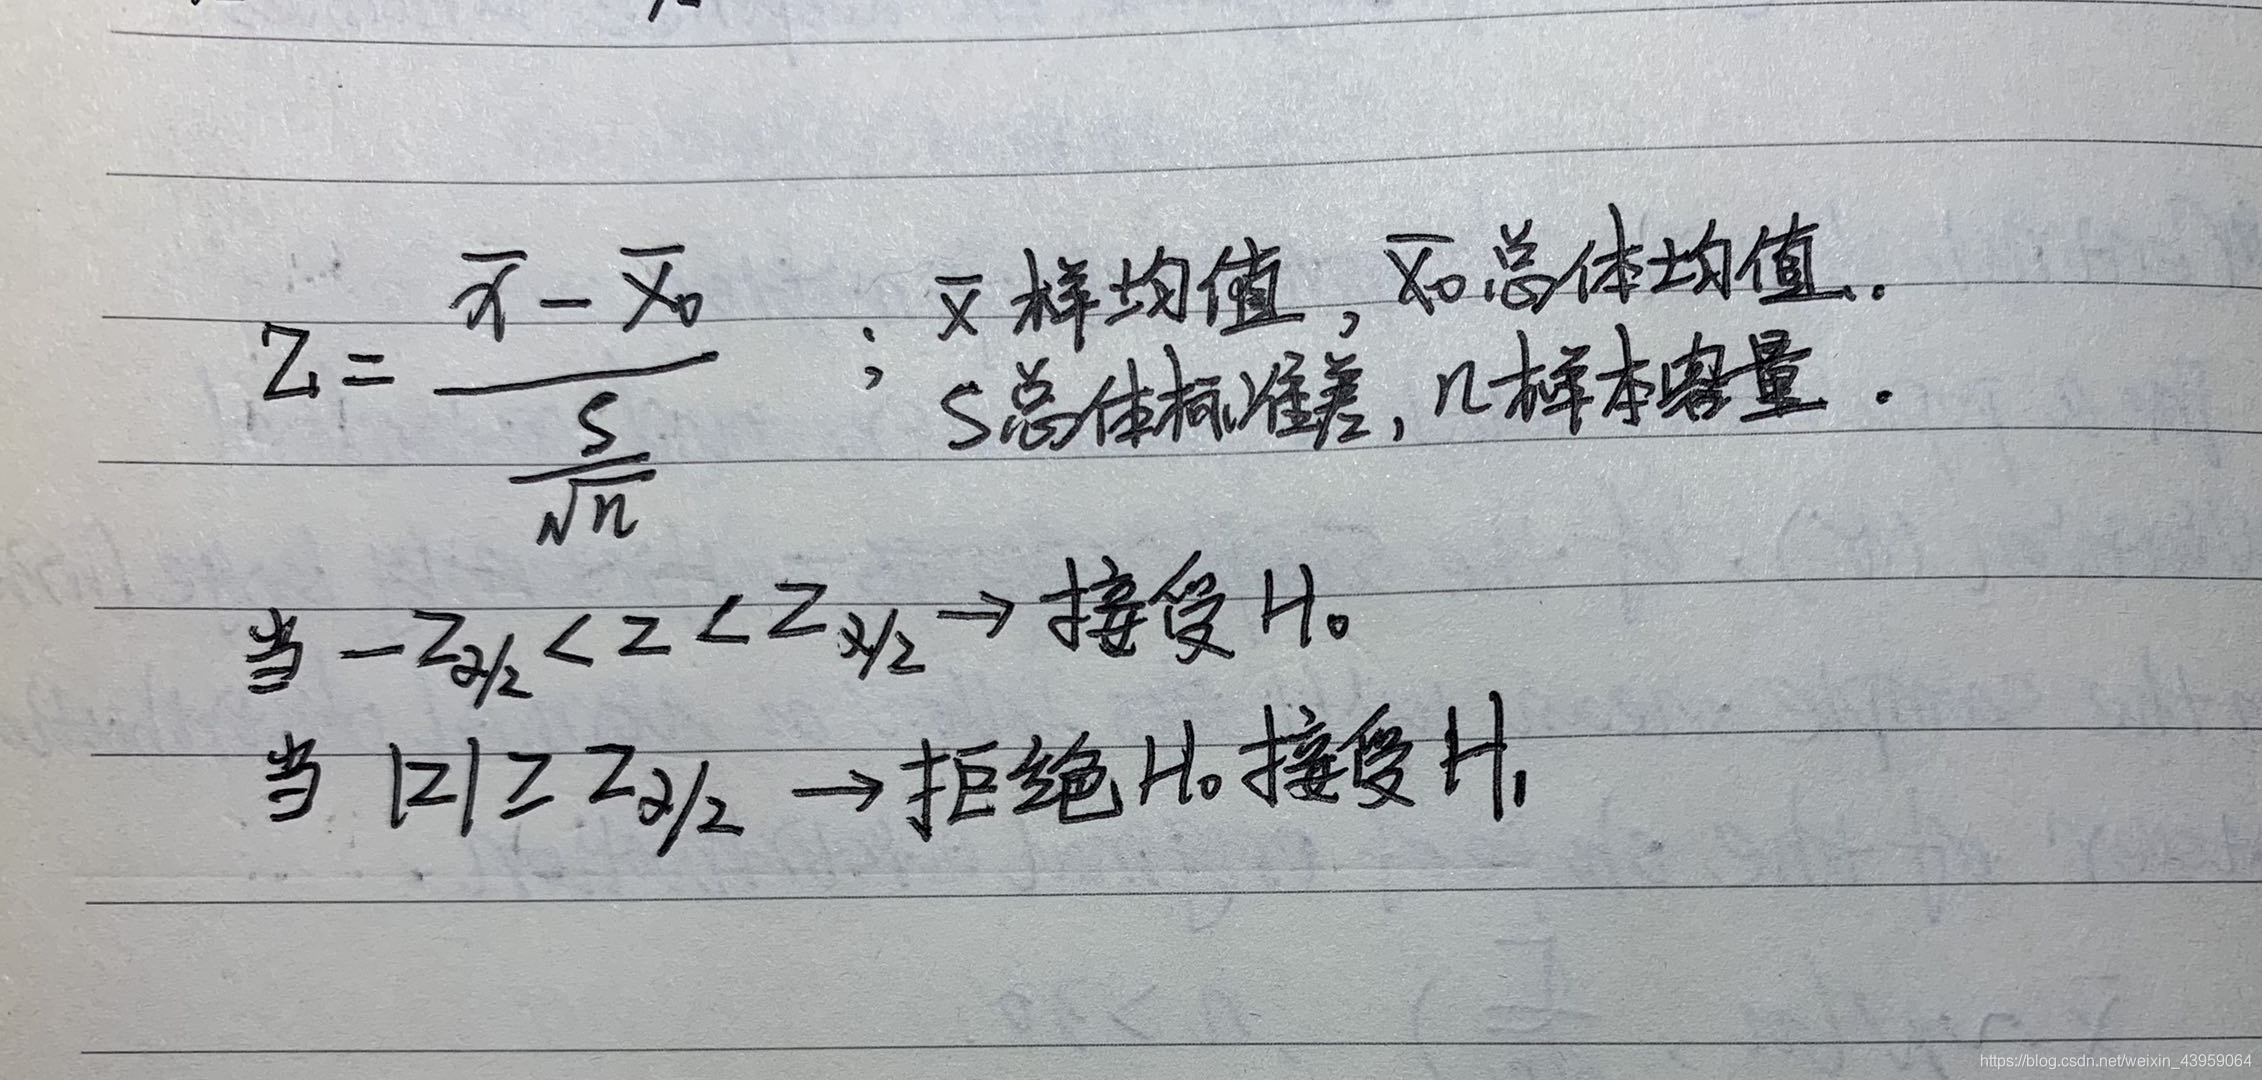 Z = (x̄ - x̄₀) / (S / √n) ; x̄ 样均值, x̄₀ 总体均值.
S总体标准差, n样本容量.
当 -Zα/2 < Z < Zα/2 → 接受 H₀
当 |Z| ≥ Zα/2 → 拒绝 H₀ 接受 H₁
https://blog.csdn.net/weixin_43959064